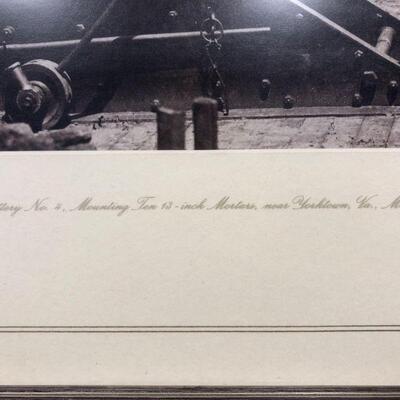 ttery No. 4, Mounting Ten 13-inch Mortars, near Yorktown, Va., M